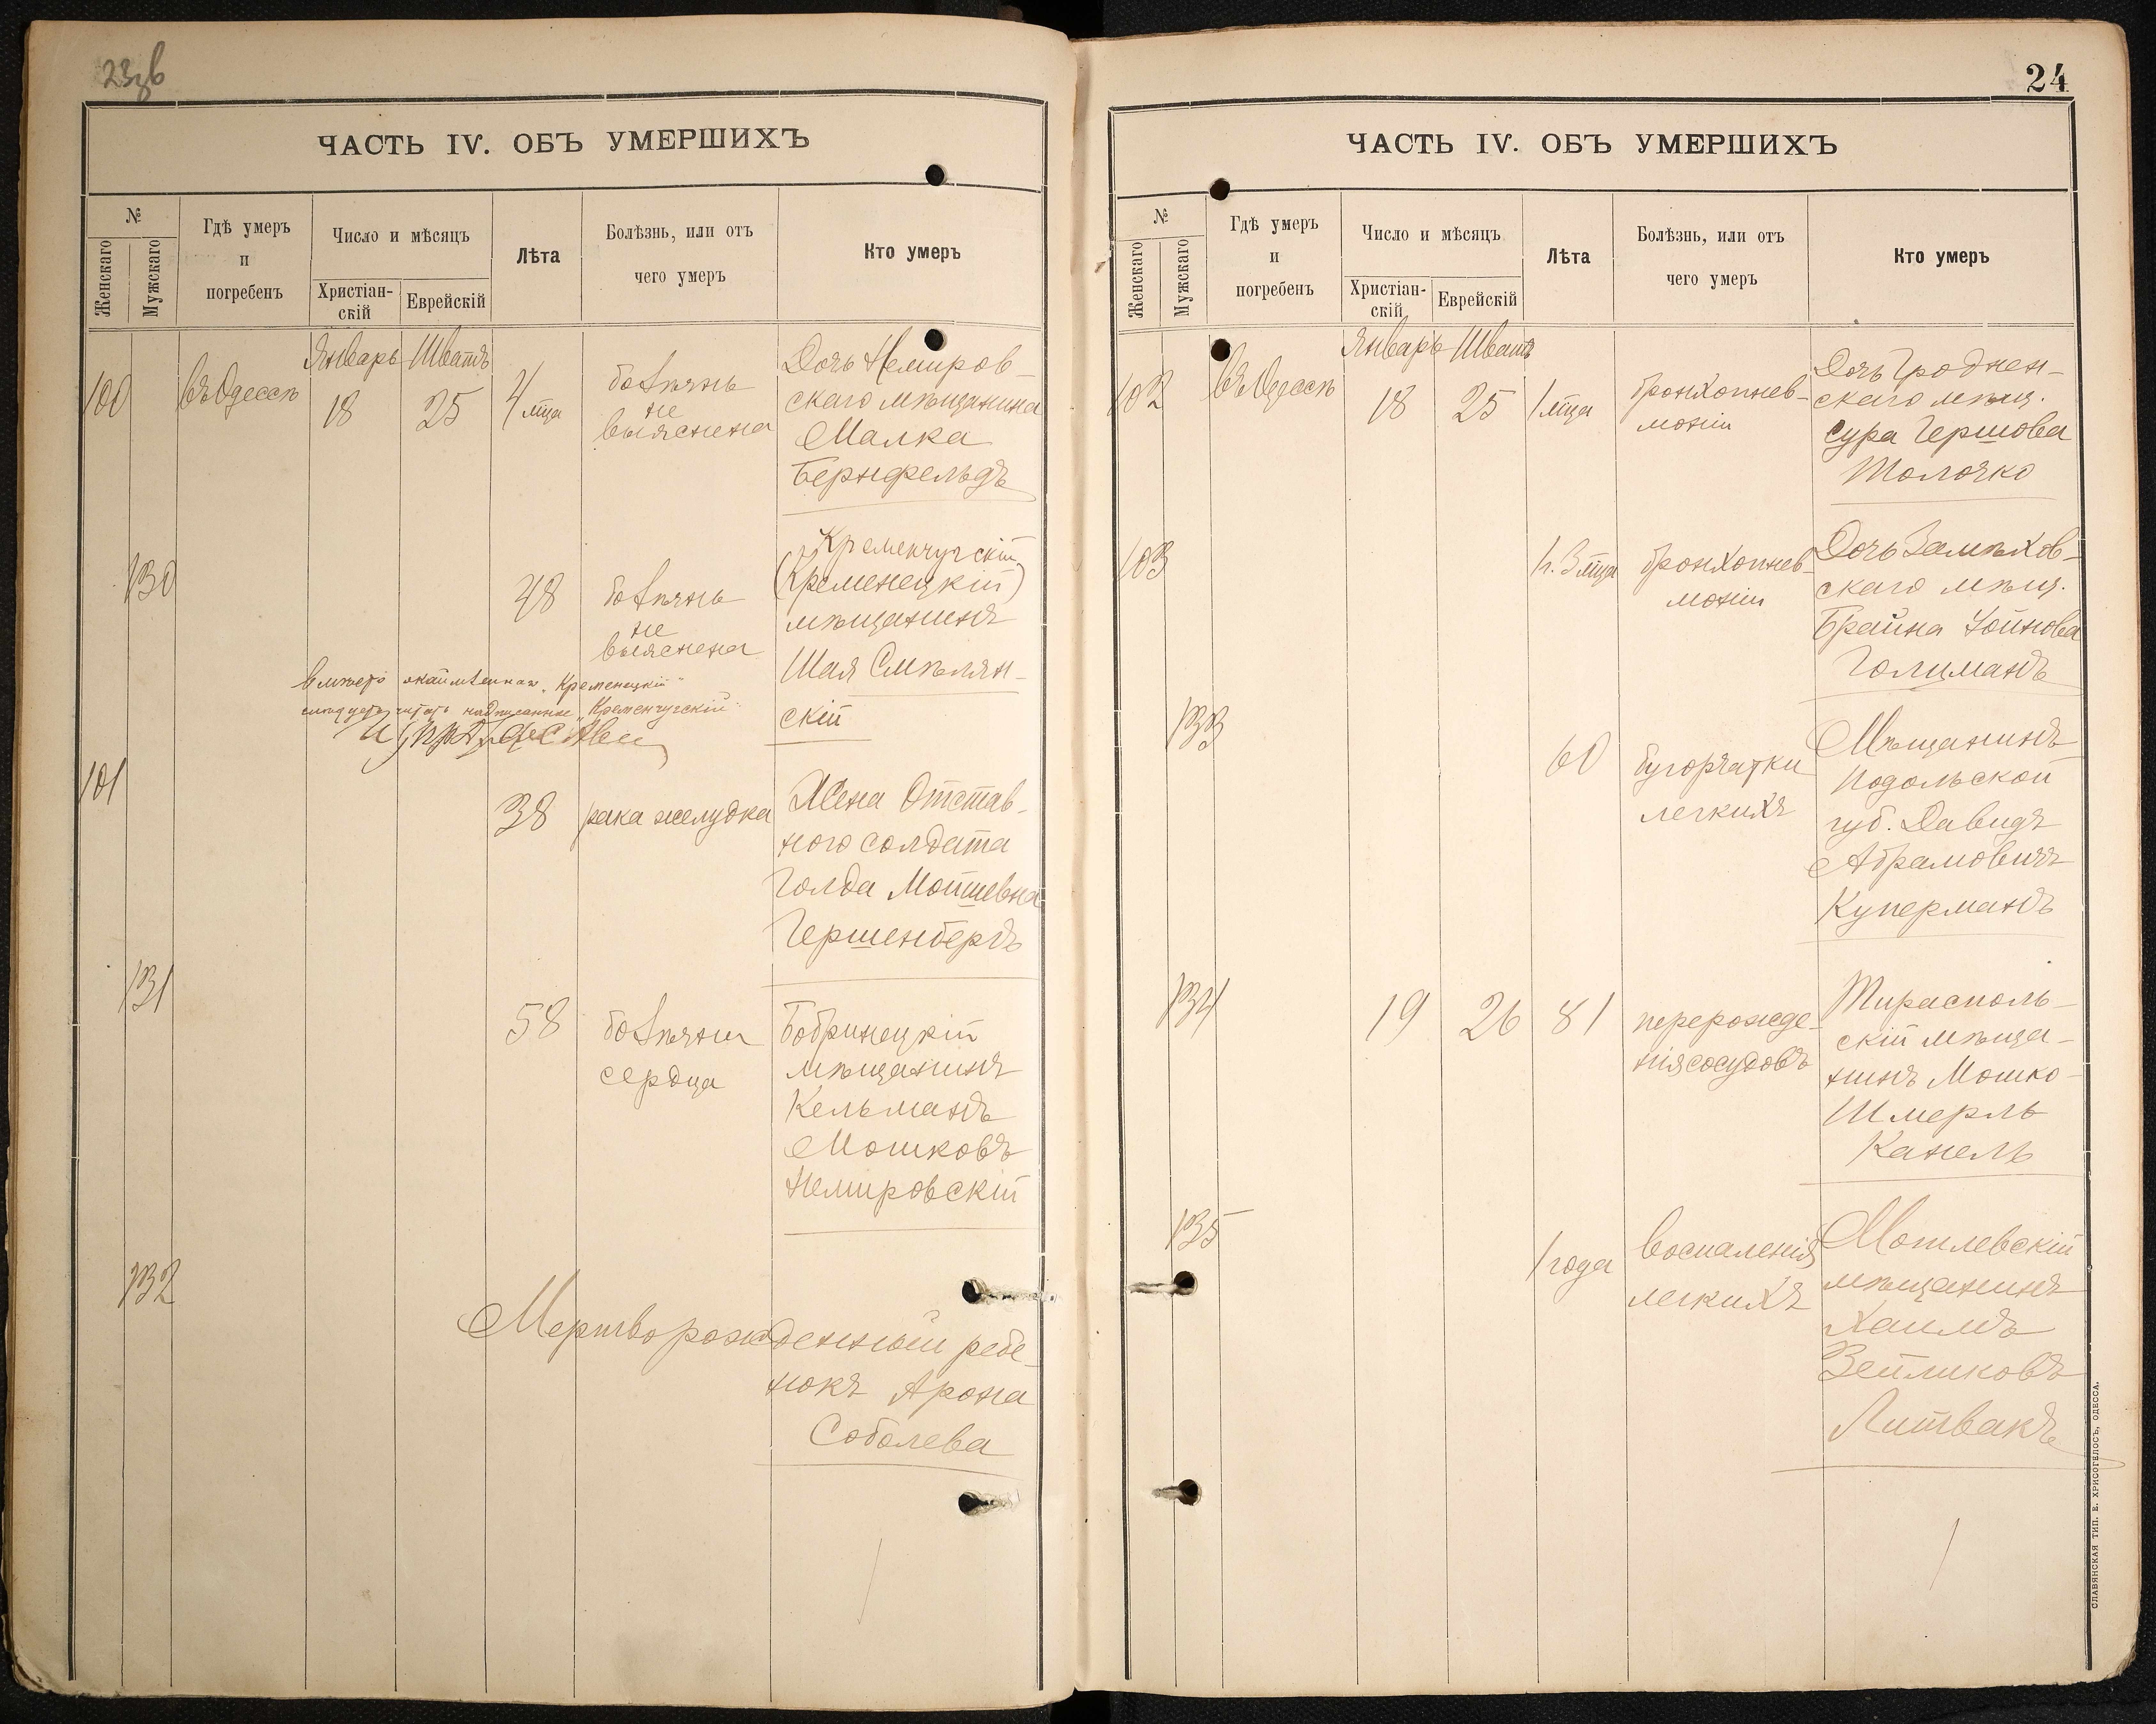 23об
ЧАСТЬ IV. ОБЪ УМЕРШИХЪ
№
Женскаго
Мужскаго
Гдѣ умеръ
и
погребенъ
Число и мѣсяцъ
Христіан-
скій
Еврейскій
Лѣта
Болѣзнь, или отъ
чего умеръ
Кто умеръ
Январь Шватъ
100 въ Одессѣ 18 25 4 мца
болѣзнь
не
выяснена
Дочь Немиров-
скаго мѣщанина
Малка
Бернфельдъ
130 48
болѣзнь
не
выяснена
Кременчугскій
(Кременецкій)
мѣщанинъ
Шая Смѣлян-
скій
вмѣсто окаймленнаго „Кременецкій“
слѣдуетъ читать надписанное „Кременчугскій“
101 38 рака желудка
Жена Отстав-
ного солдата
Голда Мошевна
Гершенбергъ
131 58
болѣзни
сердца
Бобринецкій
мѣщанинъ
Кельманъ
Мошковъ
Немировскій
132
Мертворожденный ребе-
нокъ Арона
Соболева
24
ЧАСТЬ IV. ОБЪ УМЕРШИХЪ
№
Женскаго
Мужскаго
Гдѣ умеръ
и
погребенъ
Число и мѣсяцъ
Христіан-
скій
Еврейскій
Лѣта
Болѣзнь, или отъ
чего умеръ
Кто умеръ
Январь Шватъ
102 въ Одессѣ 18 25 1 мца
бронхопнев-
моніи
Дочь Гроднен-
скаго мѣщ.
Сура Гершова
Толочко
103 1г. 3 мца
бронхопнев-
моніи
Дочь Замѣхов-
скаго мѣщ.
Брайна Хойнова
Голиманъ
133 60
бугорчатки
легкихъ
Мѣщанинъ
Подольской
губ. Давидъ
Абрамовичъ
Куперманъ
134 19 26 81
перерожде-
нія сосудовъ
Тирасполь-
скій мѣща-
нинъ Мошко-
Шмерль
Канель
135 1 года
воспаленія
легкихъ
Могилевскій
мѣщанинъ
Хаимъ
Зейликовъ
Литвакъ
СЛАВЯНСКАЯ ТИП. Е. ХРИСОГЕЛОСЪ, ОДЕССА.